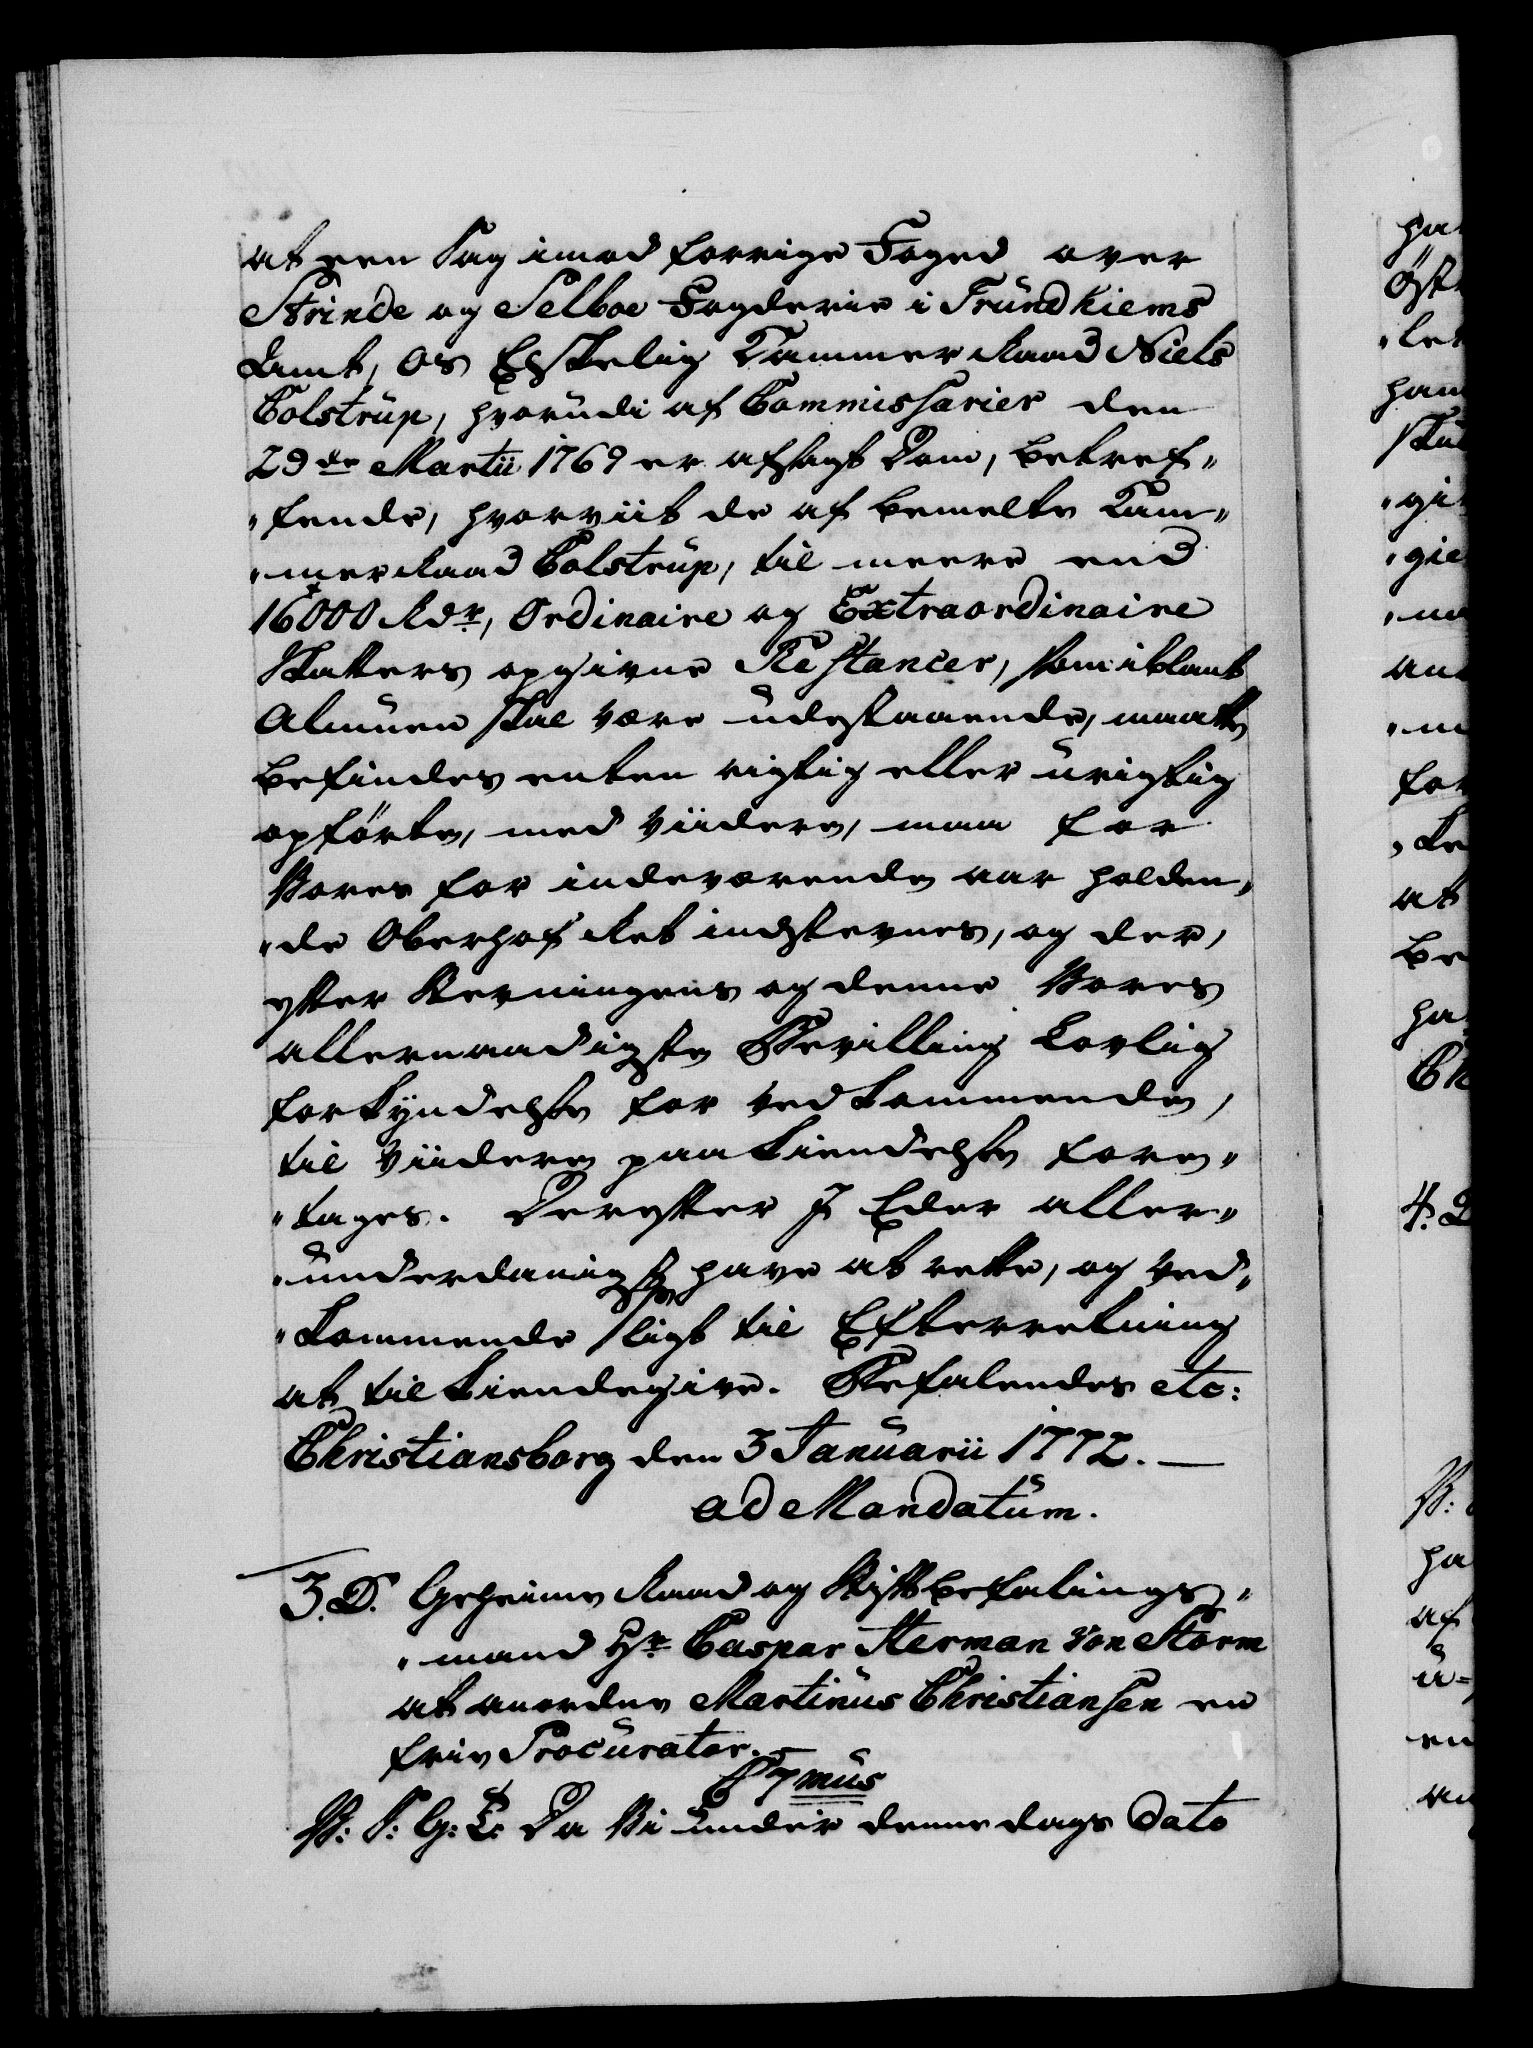 at een Sag imod forrige Foged over
Strinde og Selboe Fogderie i Trundhiems
Amt, Os Elskelig Cammerraad Niels
Colstrup, hvorudi af Commissarier den
29de Martii 1769 er afsagt Dom, betref„
„fende, hvorviit de af bemelte Cam„
„merraad Colstrup, til meere end
16000 Rdr, Ordinaire og Extraordinaire
Skatters opgivne Restancer, som iblant
Almuen skal være udestaaende, maatte
befindes enten rigtig eller urigtig
opførte, med viidere, maa for
Vores for indeværende aar holden„
„de Oberhof Ret indstevnes, og der,
efter Stevningens og denne Vores
allernaadigste Bevilling Lovlig
forkyndelse for vedkommende,
til viidere paakiendelse fore„
„tages. Derefter I Eder aller„
„underdanigst have at rette, og ved„
„kommende sligt til Efterretning
at tilkiendegive. Befalendes etc:
Christiansborg den 3 Januarii 1772. —
ad Mandatum.
3. D. Geheime Raad og Stiftbefalings„
„mand Hr Caspar Herman von Storm
at anordne Martinus Christiansen en
friv Procurator. —
C 7mus
V: S: G: T: Da Vi under denne dags Dato